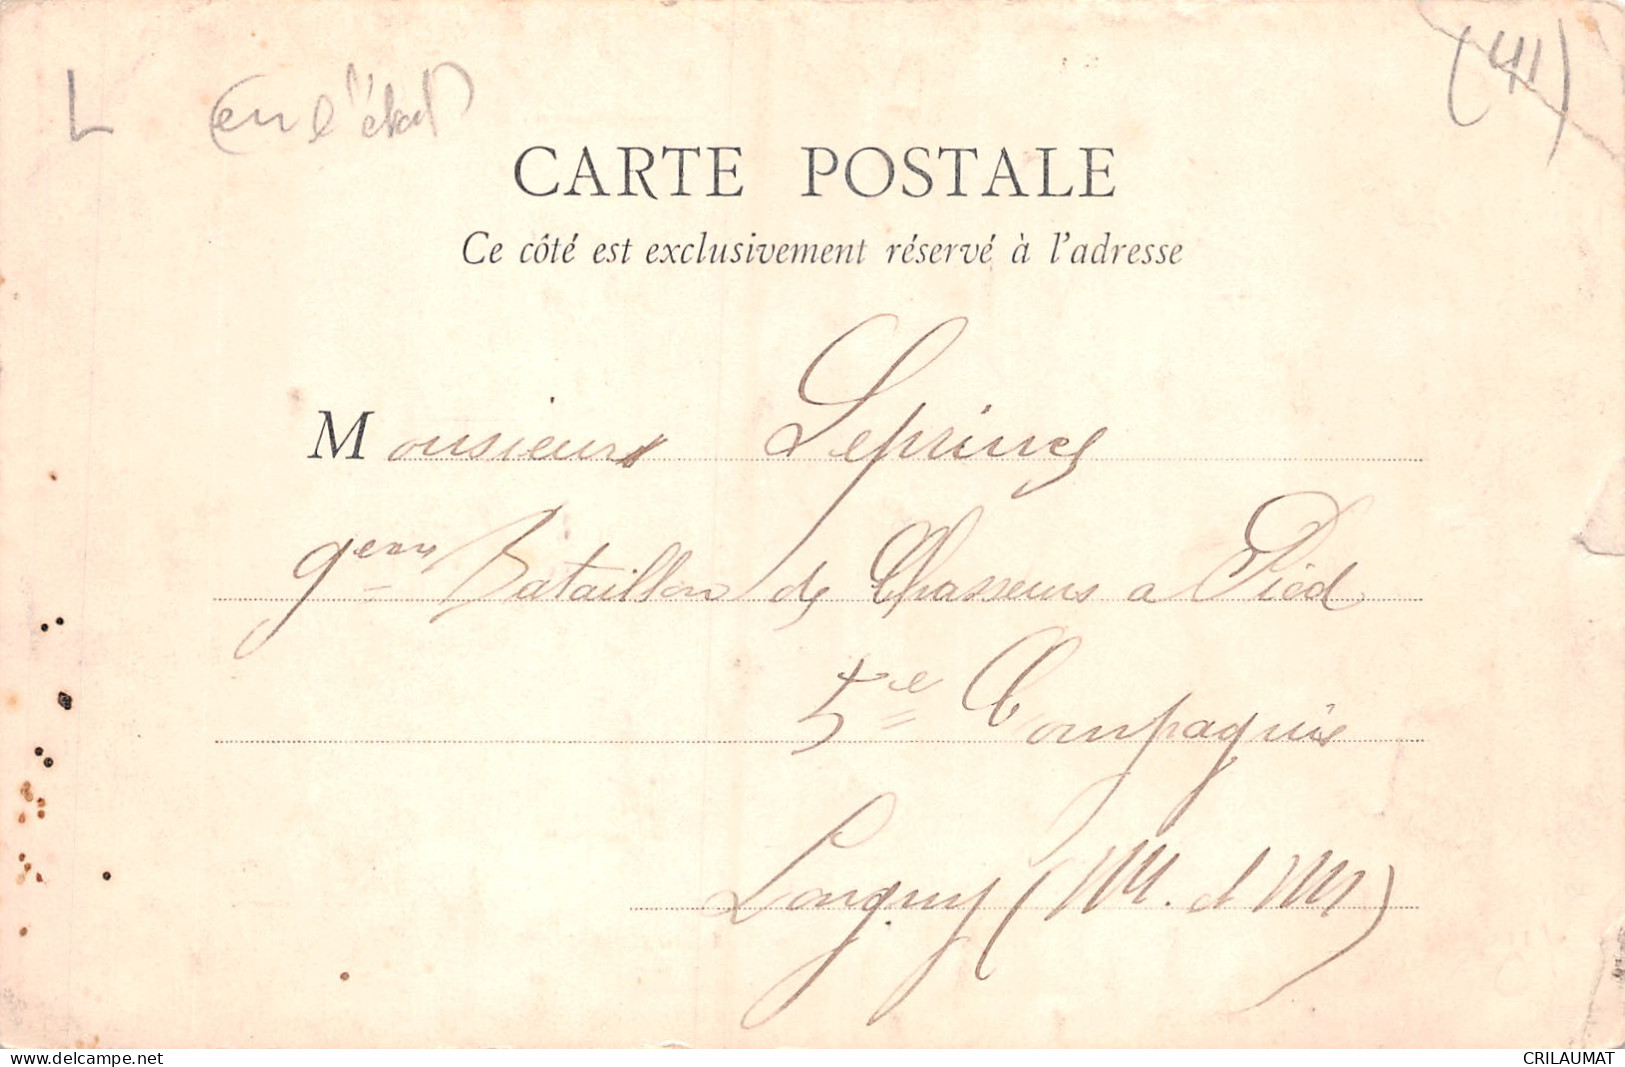 L (en l'état) (41)
CARTE POSTALE
Ce côté est exclusivement réservé à l'adresse
Monsieur Leprince
9eme Bataillon de Chasseurs a Pied
5e Compagnie
Longwy (M. et M)
www.delcampe.net
CRILAUMAT